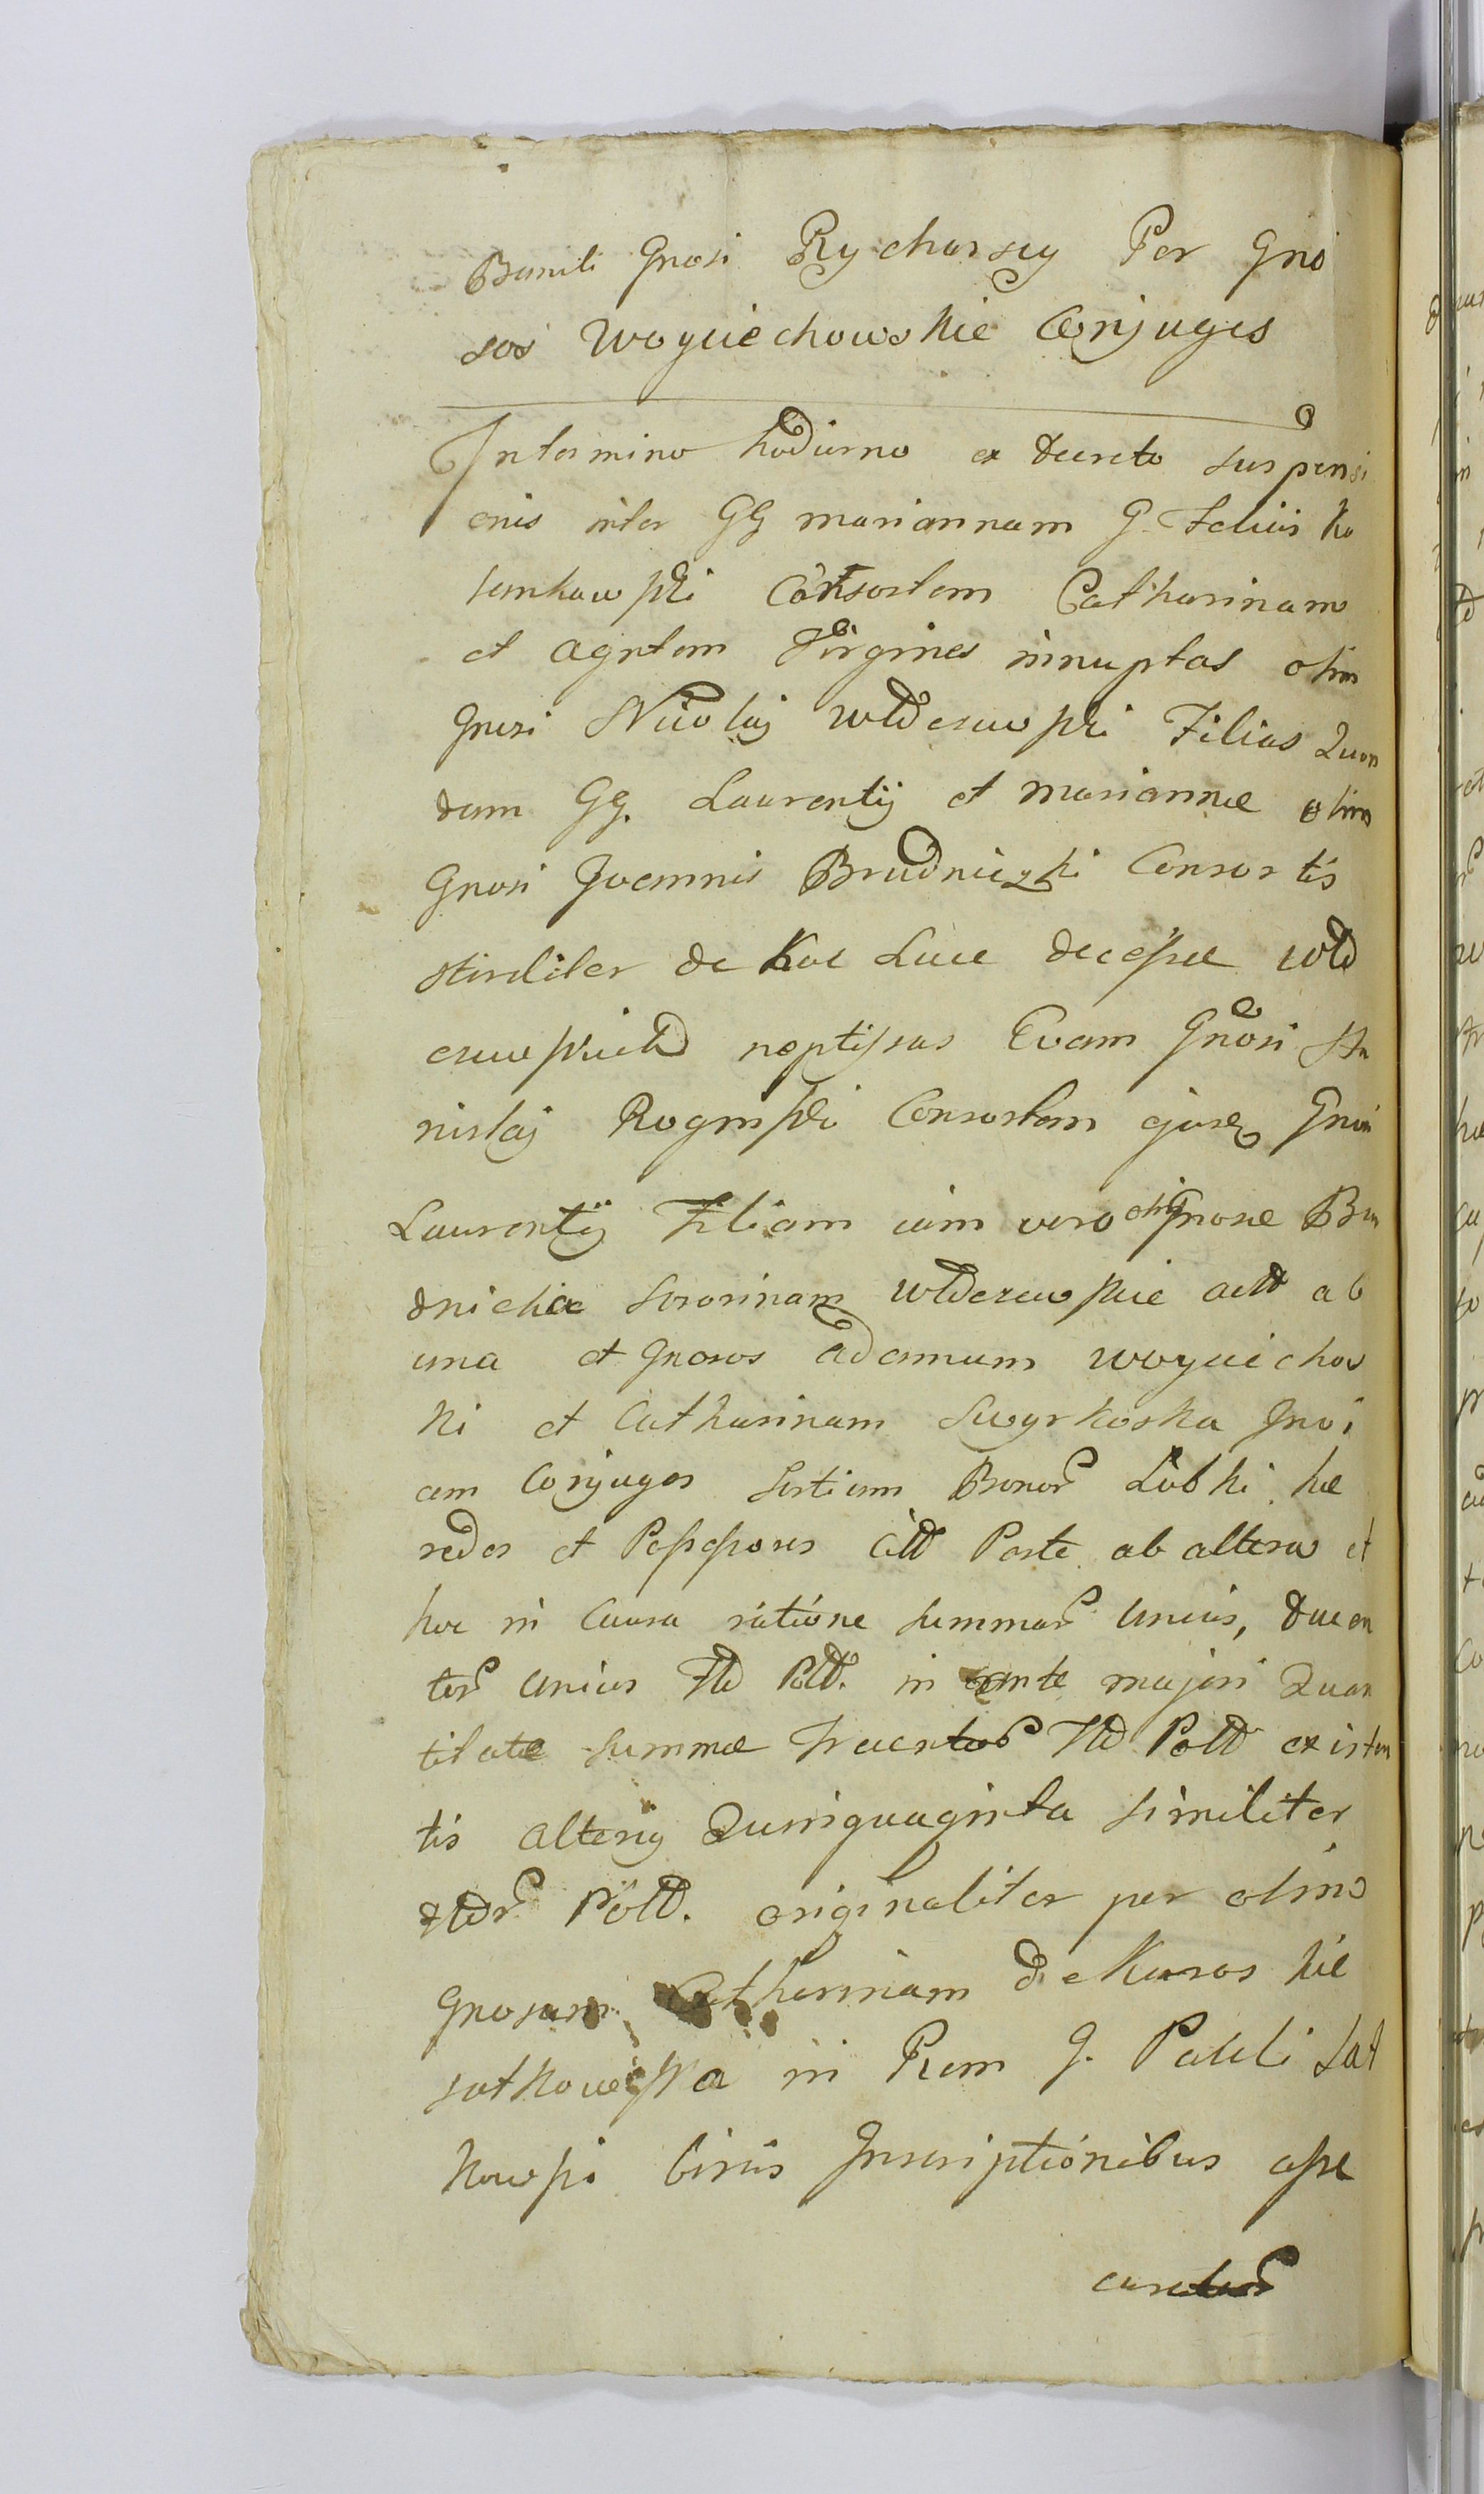 Baniti Gnosi Rycharscy Per Gno
sos Woyciechowskie Conjuges
In termino hodierno ex decreto suspensi
onis inter GG mariannam G. Felicis Ko
Consortem Catharinam
et Agnetem Virgines innuptas olim
Gnosi Nicolaj Filias Quon
dam GG. Laurentij et mariannæ olim
Gnosi Joannis Brudnicki Consortis
steriliter de hac Luce decessæ
neptissas Evam Gnosi Sta
nislaj Consortem ejusq Gnosi
Laurentij Filiam iam vero olim Gnosæ Bru
dnicka Sororinam actt ab
una et Gnosos Adamum woyciechow
ki et Catharinam Swyrkoska Invi
cem Conjuges Sortium Bonor Lubki hæ
redes et Possessores citt Parte ab altera et
hoc in Causa ratióne summar Unius, ducen
tor Unius Fld Poll. in ante majori Quan
titate summæ trecentor Fld Poll existen
tis alterig Quinquaginta similiter
fldr Poll. originaliter per olim
Gnosam Catharinam de
in Rem G. Pauli Sat
kowski binis Inscriptiónibus asse
curator